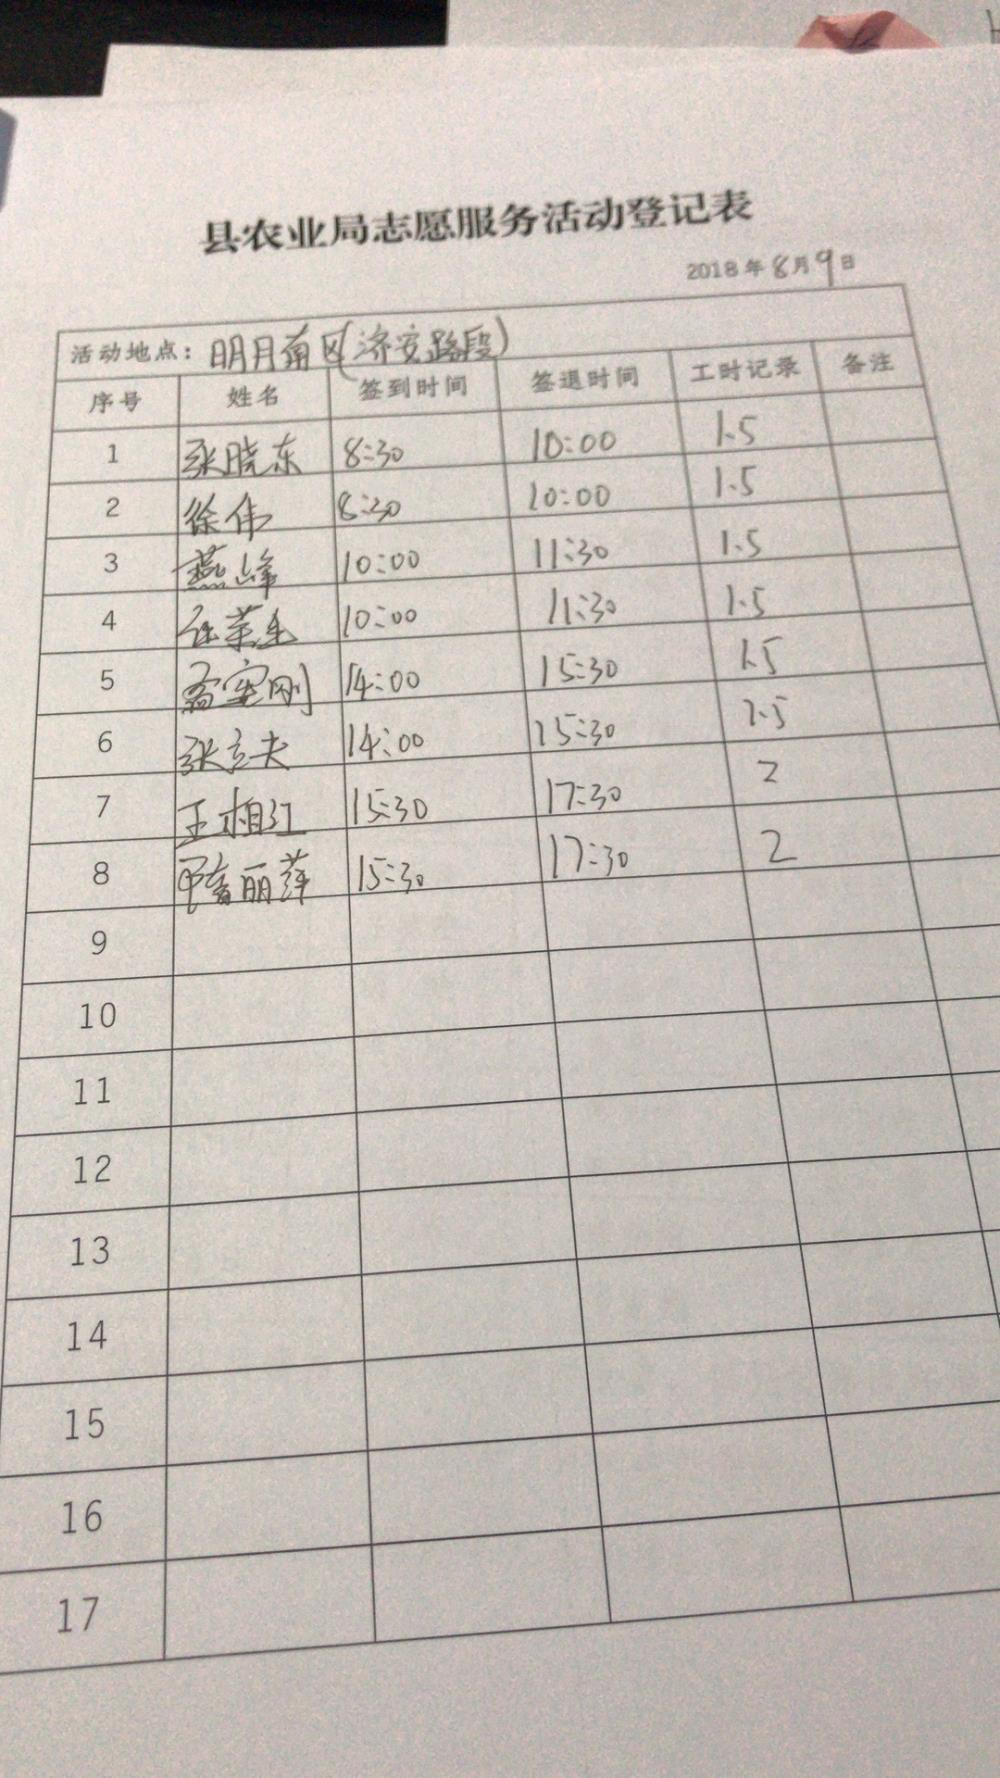 县农业局志愿服务活动登记表
2018年8月9日
活动地点：明月南区(济安路段)
序号 姓名 签到时间 签退时间 工时记录 备注
1 张晓东 8:30 10:00 1.5
2 徐伟 8:30 10:00 1.5
3 燕峰 10:00 11:30 1.5
4 10:00 11:30 1.5
5 刚 14:00 15:30 1.5
6 张立夫 14:00 15:30 1.5
7 王相江 15:30 17:30 2
8 丽萍 15:30 17:30 2
9
10
11
12
13
14
15
16
17